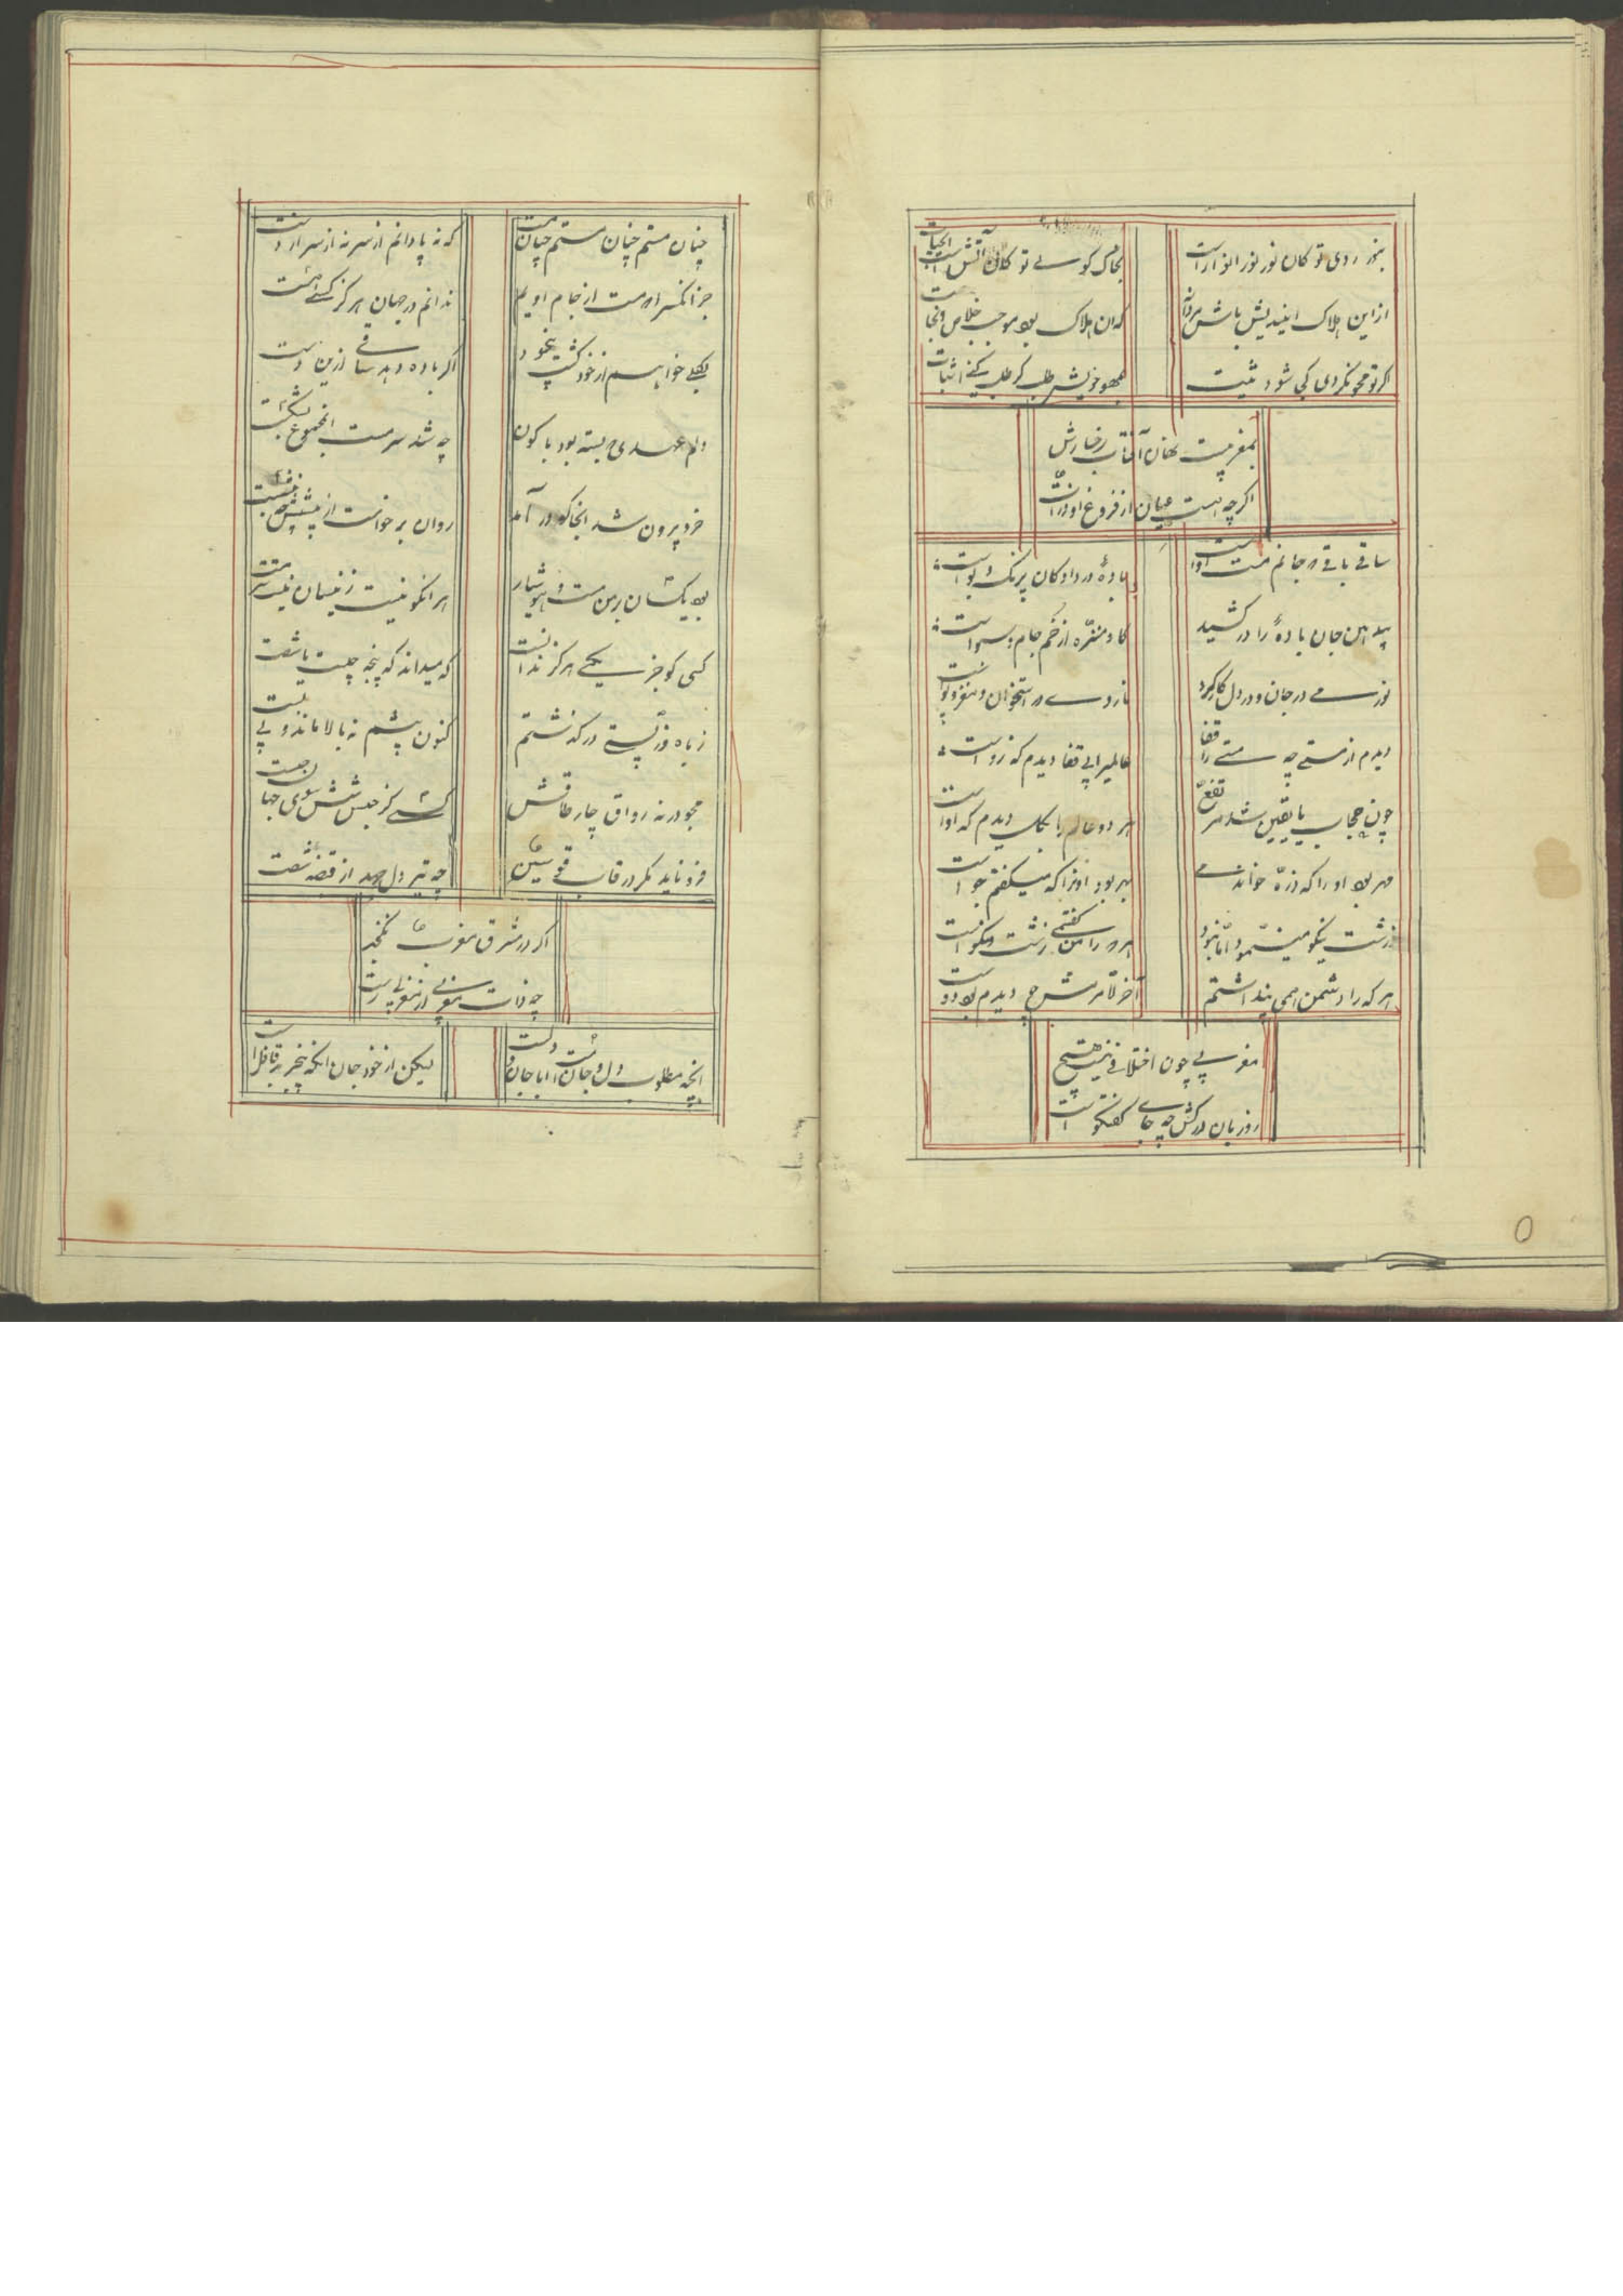 بنور روی تو کان نور نور انوار است
بخاک کوی تو کان آتش است آب حیات
ازین هلاک میندیش باش مردانه
که ان هلاک بود موجب خلاص و نجات
اگر تو محو نگردی کجا شود مثبت
بمحو خویش طلب گر طلب کنی اثبات
بمغربیست نهان آفتاب رخسارش
اگر چه هست عیان از فروغ او ذرات
ساقی باقی که جانم مست اوست
باده در داد کان بی رنگ و بوست
پیش این جان باده را درکشید
کاو منزه از خم جام و سبوست
نور می در جان و در دل کار کرد
نار وی در استخوان و مغز و پوست
دیدم از مستی چه هستی را قفا
عالمی را بی قفا دیدم که روست
چون حجاب ما یقین شد مرتفع
هر دو عالم را بکل دیدم که اوست
مهر بود او را که ذره خواندمی
بحر بود انرا که میگفتم جو است
زشت نیکو مینمود اما نبود
هر که را من گفتمی زشت و نکوست
هر که را دشمن همی پنداشتم
آخرالامرش چو دیدم بود دوست
مغربی چون اختلافی نیست هیچ
رو زبان درکش چه جای گفتگو است
چنان مستم چنان مستم چنان مست
که نه پا دانم از سر نه از سر دست
جز انکس را که مست از جام اویم
ندانم در جهان هرگز کسی هست
بکلی خواهم از خود گشت بیخود
اگر باده دهد ساقی ازین دست
دلم عهدی که بسته بود با کون
چه شد سرمست انمجموع بشکست
خرد بیرون شد انجا کو در آمد
روان برخواست از پیشش چه بنشست
بود یکسان بر من مست و هشیار
هر انکو نیست زینسان نیست سرمست
کسی کو جز یکی هرگز ندانست
که میداند که پنجه چیست یا شصت
ز بالا و ز پستی درگذشتم
کنون پیشم نه بالا ماند و نی پست
مجو در نه رواق چار طاقش
کسی کز حبس شش سوی جهان جست
فرو ناید مگر در قاب قوسین
چه تیر دل جهد از قبضه شصت
اگر در مشرق و مغرب نگنجد
چه ذات مغربی از مغربی رست
آنچه مطلوب دل و جانست با جان و دلست
لیکن از خود جان انکه بیخبر دل غافل است